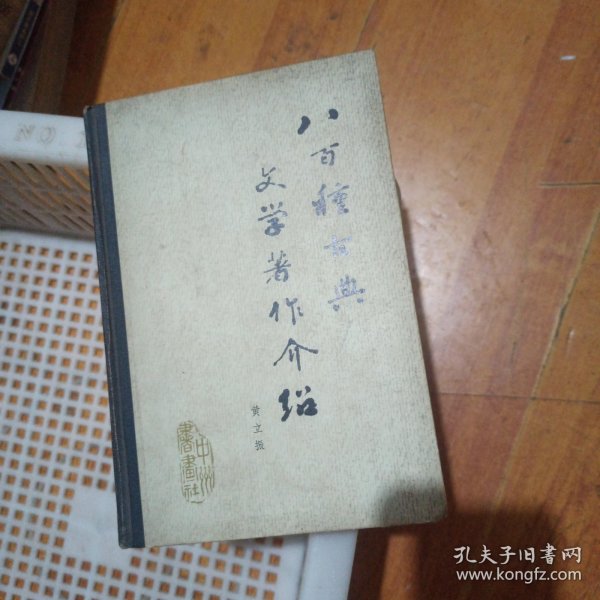 八百種古典
文学著作介绍
黄立振
中州
書畫社
NO
孔夫子旧书网
www.kongfz.com